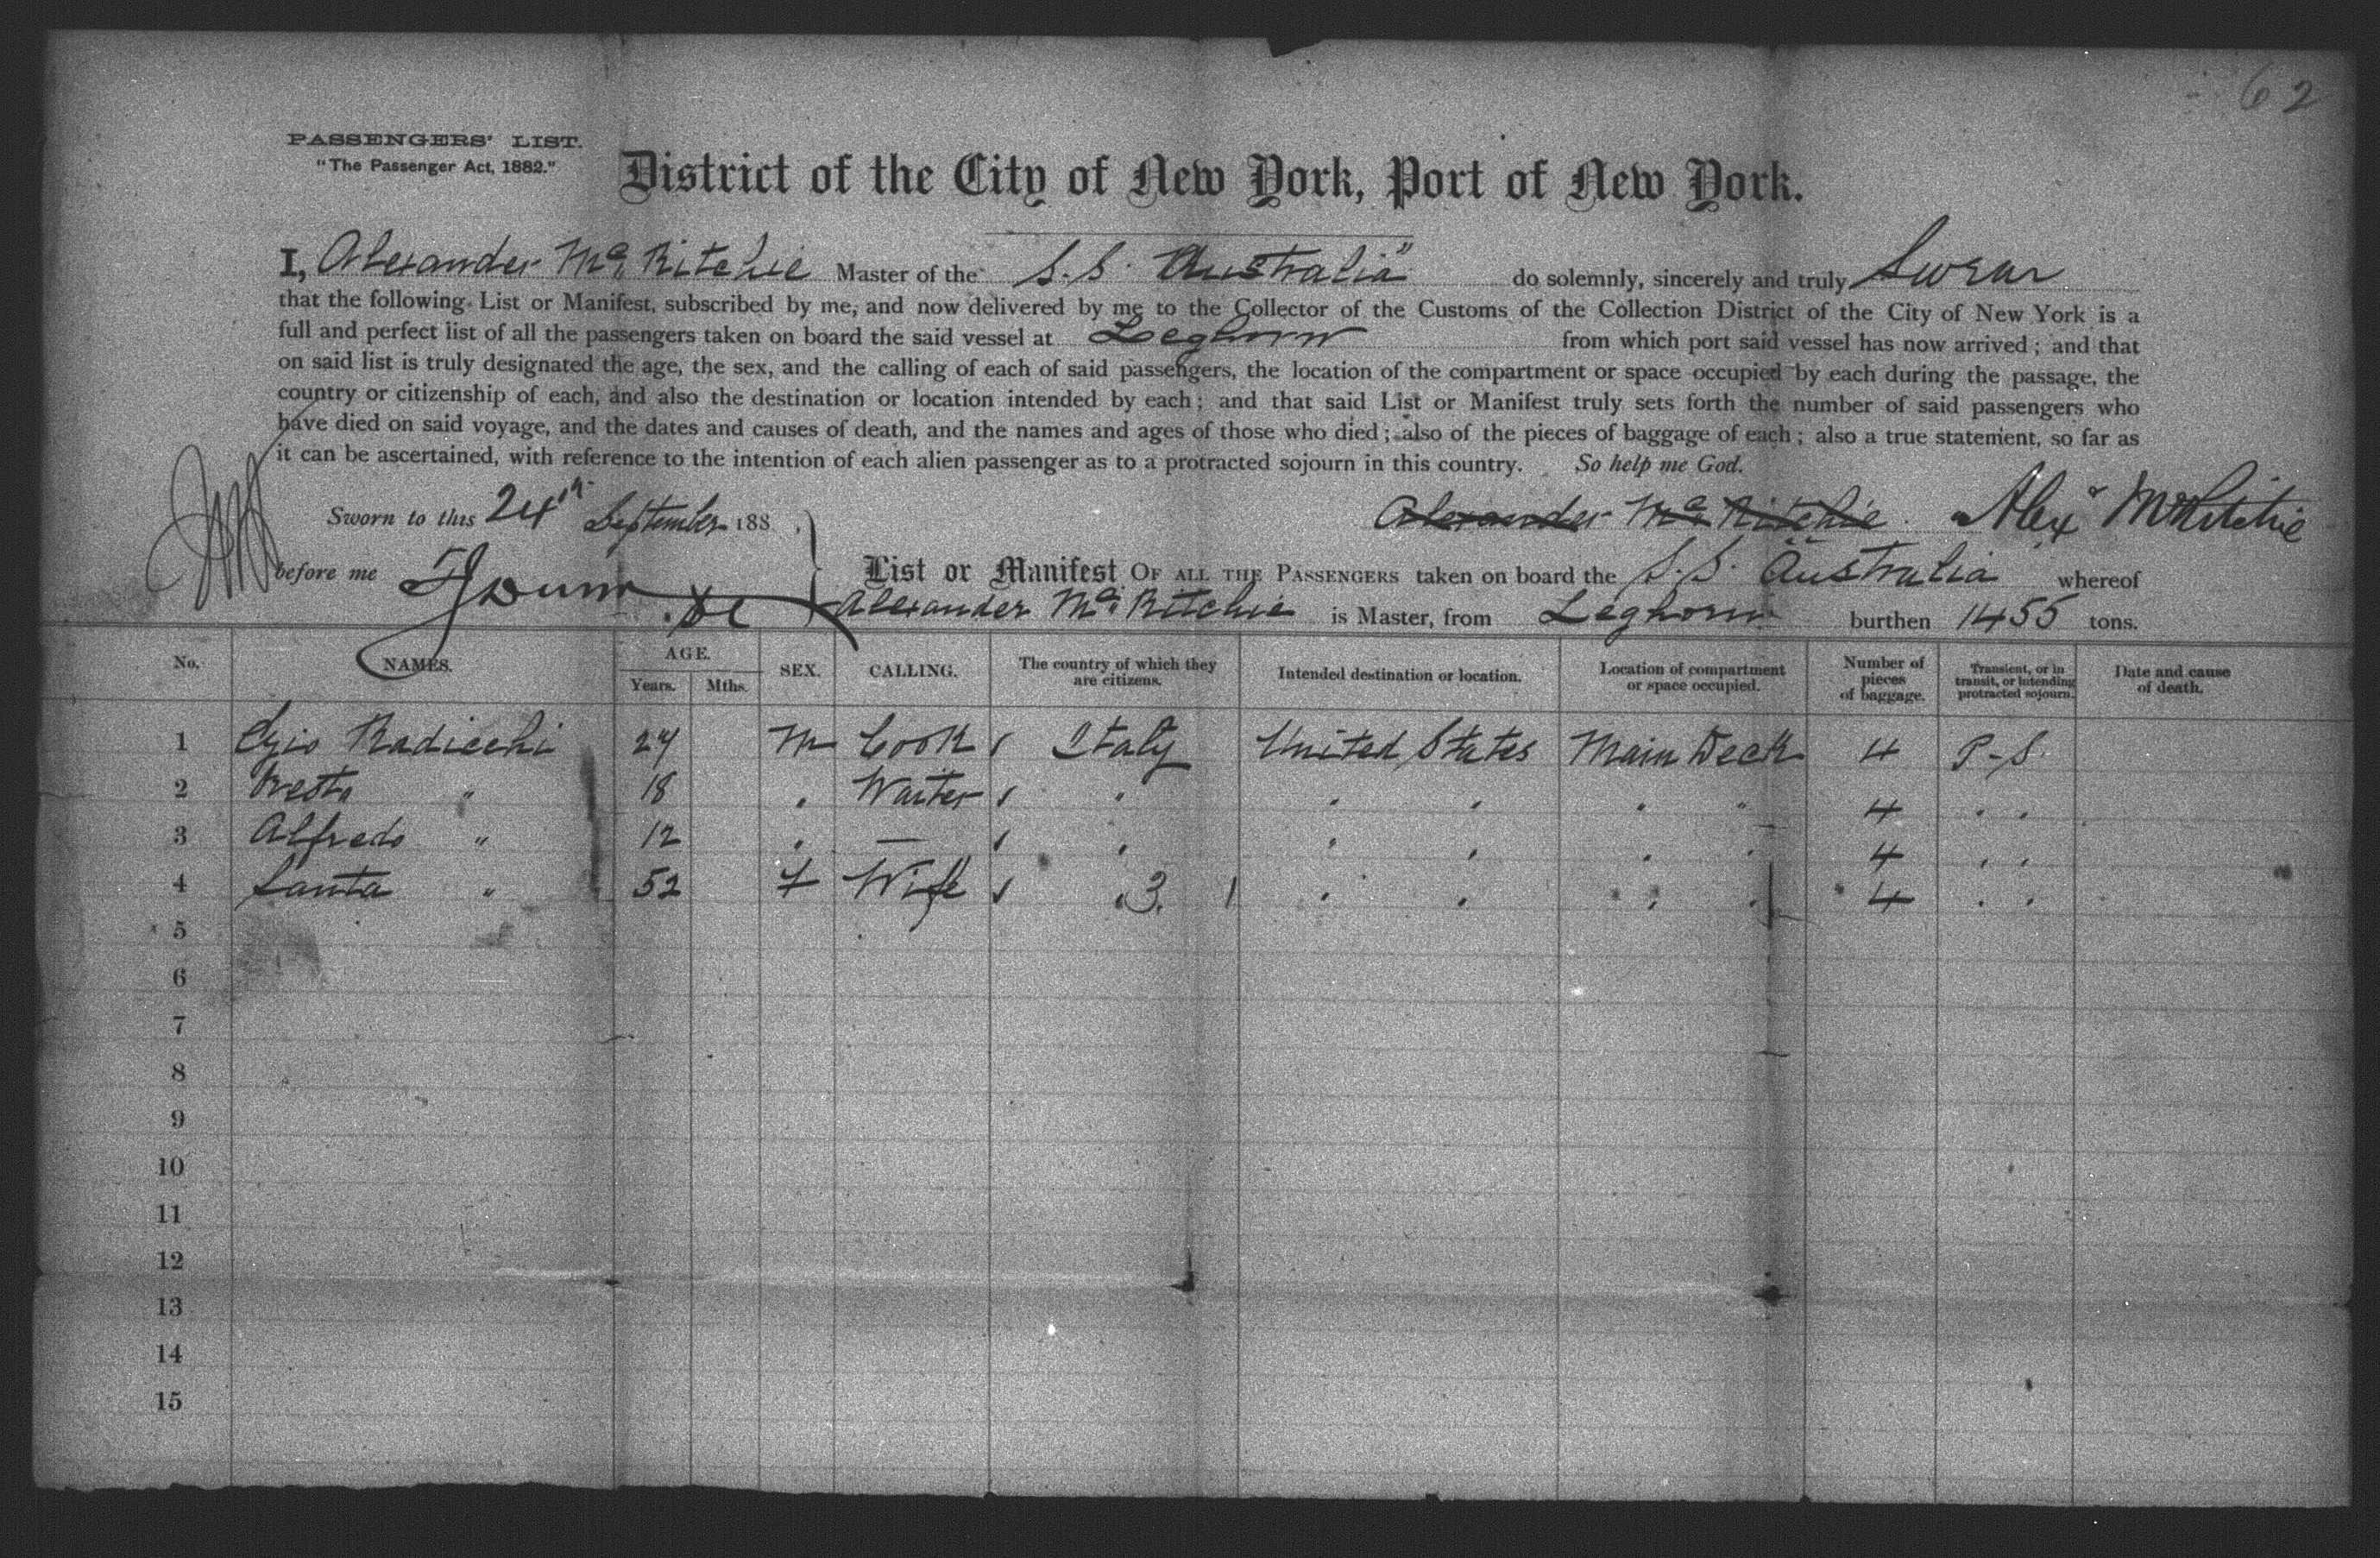 62
PASSENGERS' LIST.
"The Passenger Act, 1882."
District of the City of New York, Port of New York.
I, Alexander Mc Ritchie Master of the S.S. Australia" do solemnly, sincerely and truly Swear
that the following List or Manifest, subscribed by me, and now delivered by me to the Collector of the Customs of the Collection District of the City of New York is a
full and perfect list of all the passengers taken on board the said vessel at Leghorn from which port said vessel has now arrived; and that
on said list is truly designated the age, the sex, and the calling of each of said passengers, the location of the compartment or space occupied by each during the passage, the
country or citizenship of each, and also the destination or location intended by each; and that said List or Manifest truly sets forth the number of said passengers who
have died on said voyage, and the dates and causes of death, and the names and ages of those who died; also of the pieces of baggage of each; also a true statement, so far as
it can be ascertained, with reference to the intention of each alien passenger as to a protracted sojourn in this country. So help me God.
Sworn to this 24th September 188 Alexander Mc Ritchie Alexr McRitchie
before me
List or Manifest OF ALL THE PASSENGERS taken on board the S.S. Australia whereof
Alexander Mc Ritchie is Master, from Leghorn burthen 1455 tons.
No. NAMES. AGE. Years. Mths. SEX. CALLING. The country of which they are citizens. Intended destination or location. Location of compartment or space occupied. Number of pieces of baggage. Transient, or in transit, or intending protracted sojourn. Date and cause of death.
1 Ezio Radicchi 24 M Cook Italy United States Main Deck 4 P-S.
2 " 18 " Waiter " " " " " 4 " "
3 Alfredo " 12 " — " " " " " 4 " "
4 Santa " 52 F Wife " 3. " " " " 4 " "
5
6
7
8
9
10
11
12
13
14
15